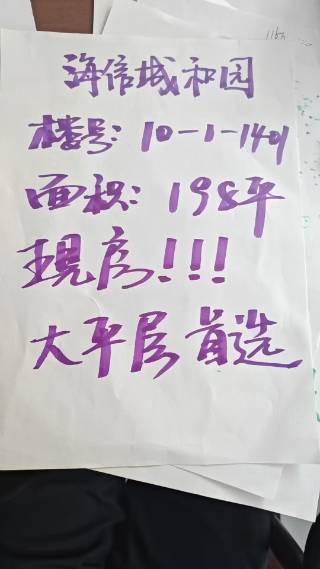 海信城和园
楼号: 10-1-1401
面积: 198平
现房!!!
大平层首选